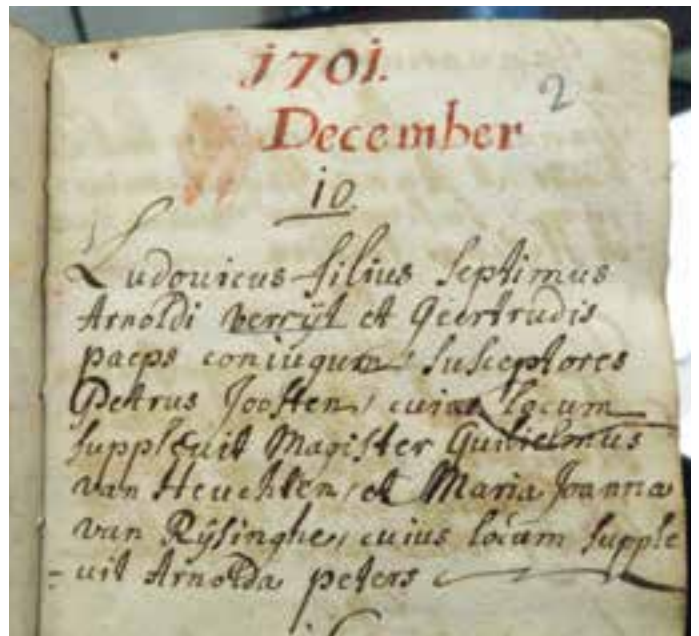 1701.
2
December
10.
Ludouicus filius septimus
Arnoldi verrijt et Geertrudis
paeps coniugum, susceptores
Petrus Joosten, cuius locum
suppleuit Magister Guilielmus
van Heuchten, et Maria Joanna
van Rijsinghe, cuius locum supple
-uit Arnolda peters